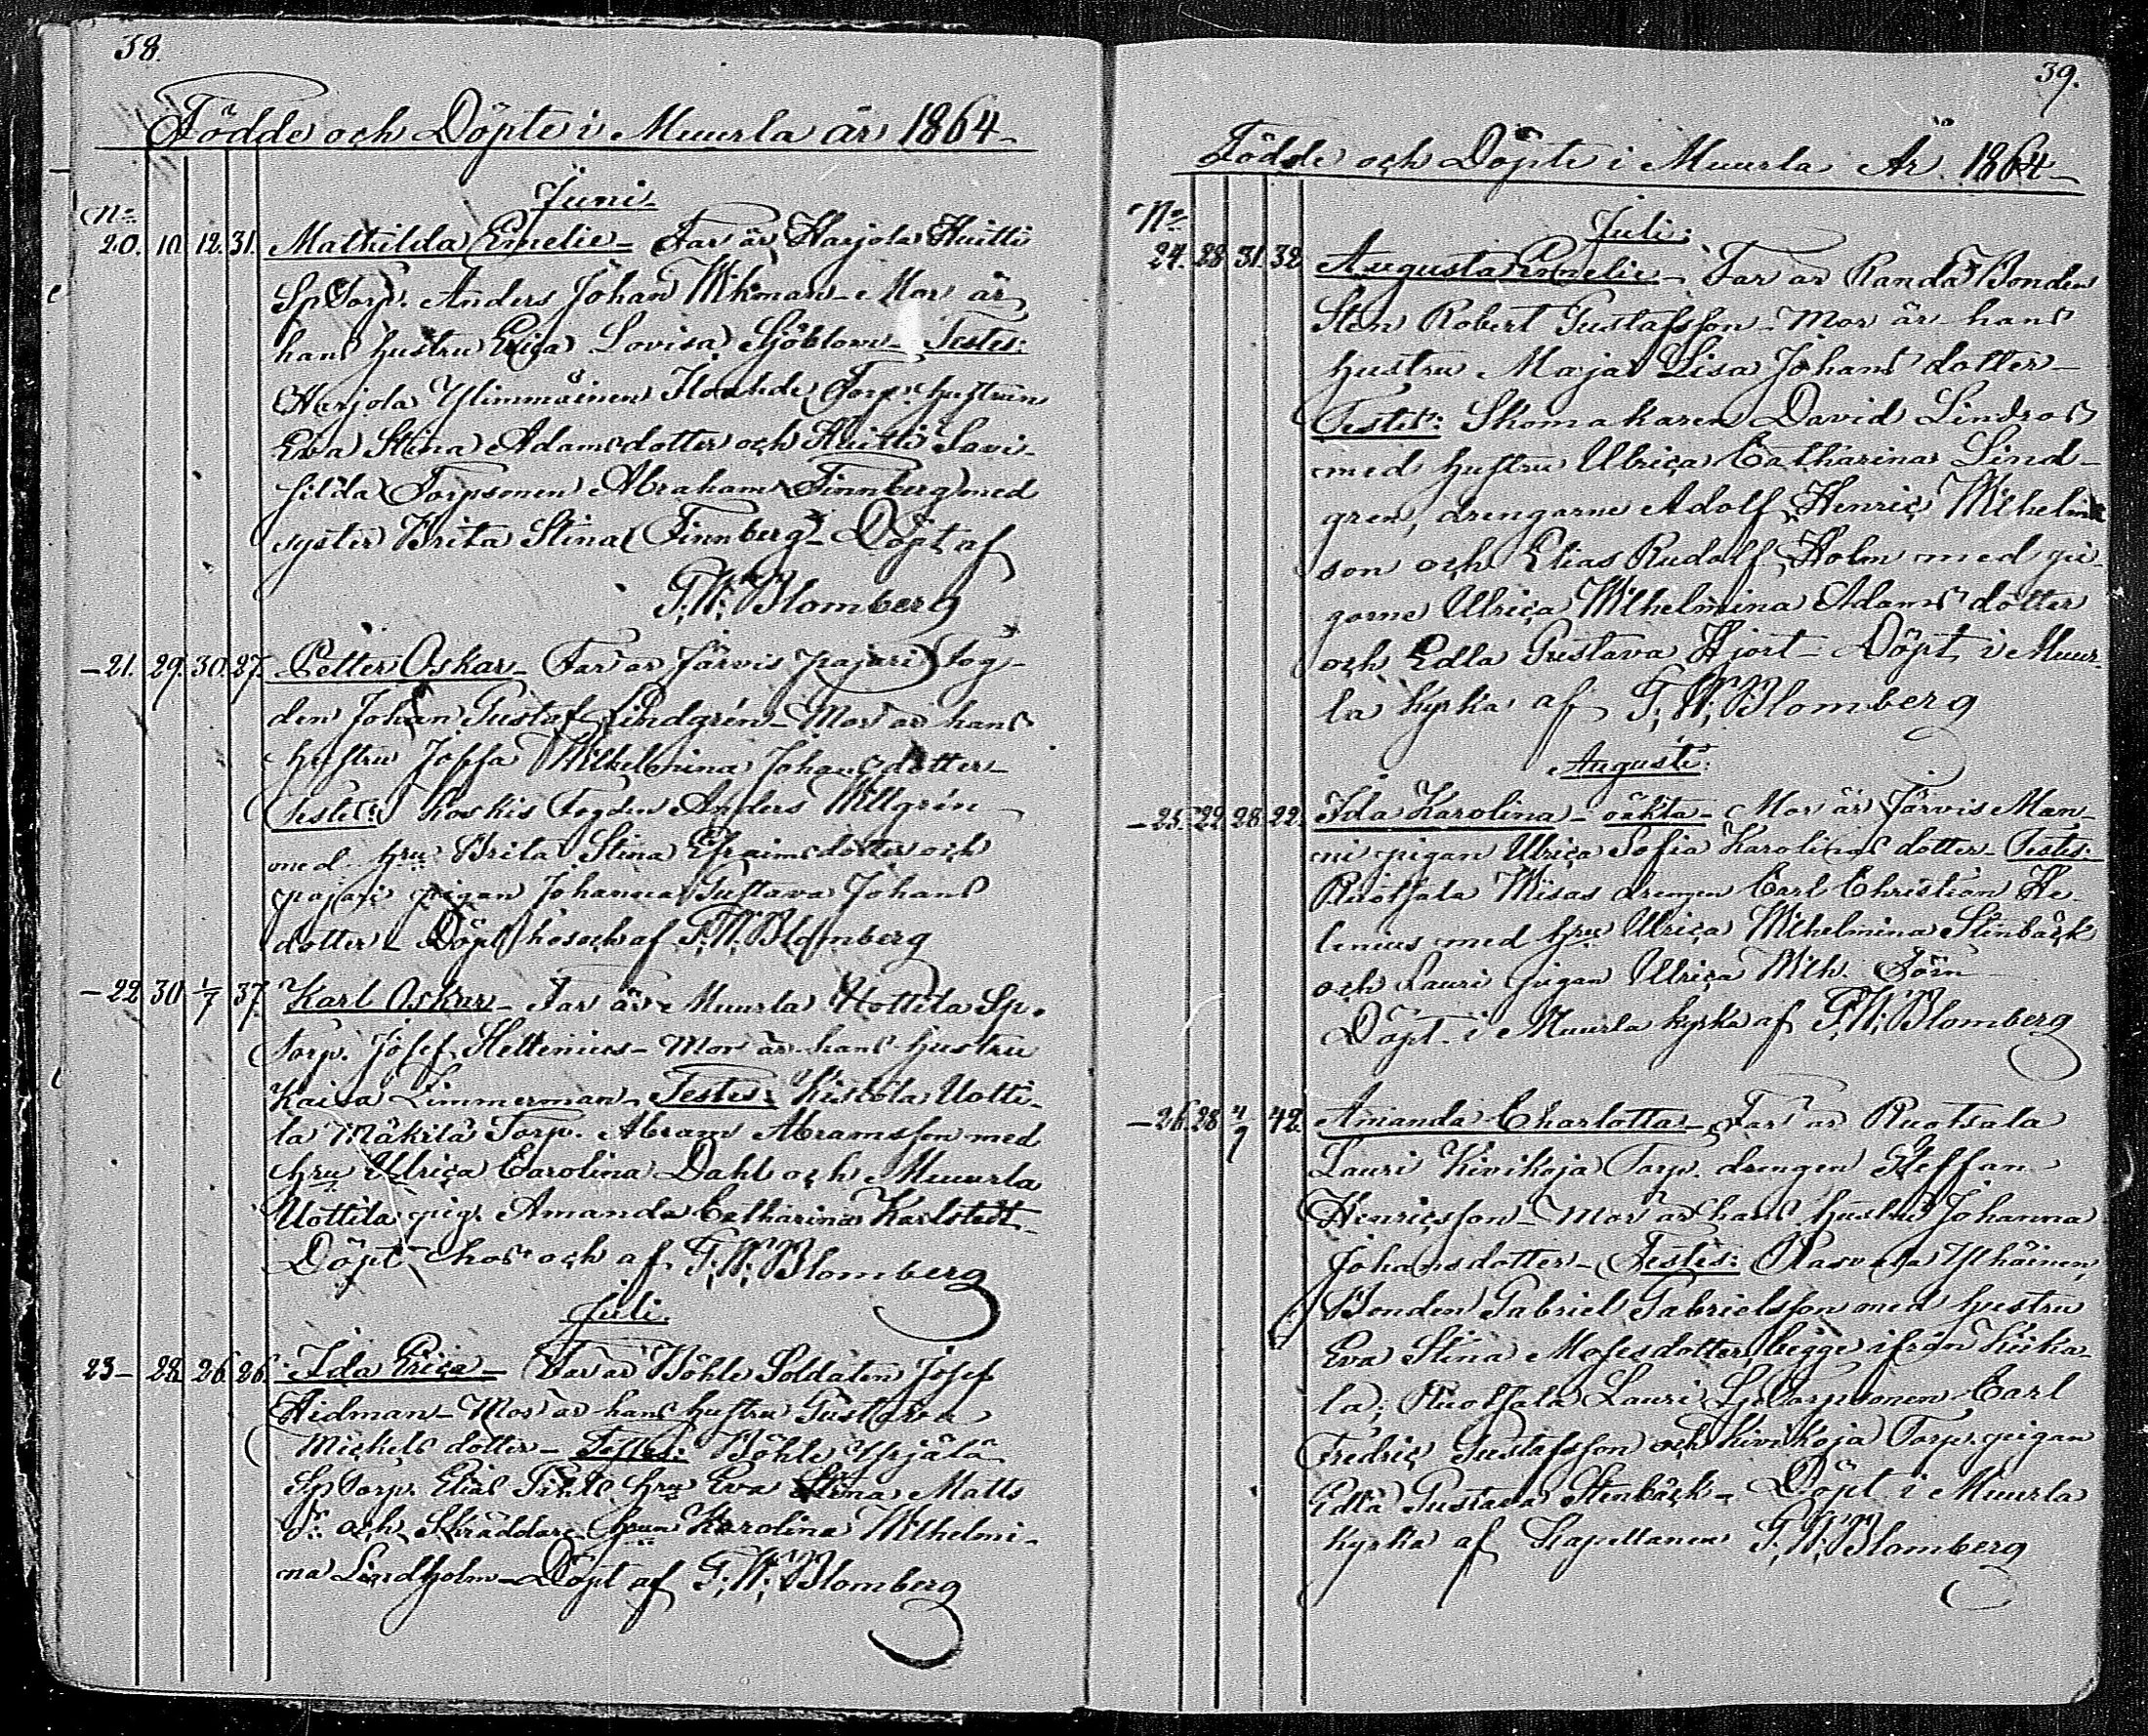 38.
Födde och Döpte i Muurla år 1864
Juni
No
20. 10. 12. 31. Mathilda Emelie - Far är Harjola Huitti
Sp Torp. Anders Johan Wikman - Mor är
hans hustru Erica Lovisa Sjöblom - Testes:
Harjola Ylimmäinen Torp. hustrun
Eva Stina Adamsdotter och Huitti Savi-
silda Torpsonen Abraham Finnberg med
syster Brita Stina Finnberg - Döpt af
F: W: Blomberg
- 21. 29. 30. 27. Petter Oskar - Far är Järvis pajari Fog-
den Johan Gustaf Lindgrén - Mor är hans
hustru Josefa Wilhelmina Johansdotter -
Testes: Koskis Fogden Anders Willgrén
med hru Brita Stina Efraimsdotter och
pajari pigan Johanna Gustava Johans
dotter - Döpt hos och af F: W: Blomberg
- 22 30 1/7 37. Karl Oskar - Far är Muurla Uottila Sp.
Torp. Josef Hellenius - Mor är hans hustru
Kaisa Zimmerman - Testes: Kistola Uotti-
la Mäkilä Torp. Abram Abramsson med
hru Ulrica Carolina Dahl och Muurla
Uottila pig. Amanda Catharina Karlstedt -
Döpt hos och af F: W: Blomberg
Juli.
23 - 23. 26. 26. Ida Erica - Far är Böhle Soldaten Josef
Hidman - Mor är hans hustru Gustava
Michels dotter - Testes: Böhle Yrjälä
Sp Torp. Elias hru Eva Stina Matts
d: och Skräddare hrun Karolina Wilhelmi-
na Lindholm - Döpt af F: W: Blomberg
39.
Födde och Döpte i Muurla År 1864
No
Juli:
24. 28 31. 32 Augusta Emelie - Far är Randa Bonden
Sten Robert Gustafsson - Mor är hans
hustru Maja Lisa Johans dotter -
Testes: Skomakaren David Lindros
med hustru Ulrica Catharina Lind-
gren, drengarne Adolf Henric Wilhelms
son och Elias Rudolf Holm med pi-
gorne Ulrica Wilhelmina Adams dotter
och Edla Gustava Hjort - Döpt i Muur-
la Kyrka af F: W: Blomberg
Augusti:
- 25. 22. 28. 22. Ida Karolina - oäkta - Mor är Järvis Man-
ni pigan Ulrica Sofia Karolinas dotter - Testes:
Ruotsala Wisas drengen Carl Christian He-
lenius med hru Ulrica Wilhelmina Stenbäck
och Lauri pigan Ulrica Wilh. Törn
Döpt i Muurla kyrka af F: W: Blomberg
- 26. 28. 4/9 42. Amanda Charlotta - Far är Ruotsala
Lauri Kivikoja Torp. drengen Steffan
Henricsson - Mor är hans hustru Johanna
Johansdotter - Testes: Rasvala Ylhäinen
Bonden Gabriel Gabrielsson med hustru
Eva Stina Mosesdotter, bägge ifrån Kiika-
la; Ruotsala Lauri Sp Torpsonen Carl
Fredric Gustafsson och Kivikoja Torp. pigan
Edla Gustava Stenbäck - Döpt i Muurla
kyrka af Kapellanen F: W: Blomberg